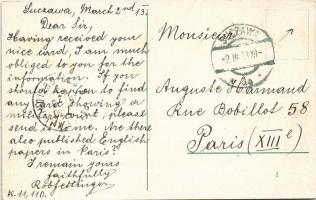 Suczawa, March 2nd 13.
Dear Sir,
Having received your
nice card, I am much
obliged to you for the
information. If you
should happen to find
any card showing a
military court, please
send it to me. Are there
also published English
papers in Paris?
I remain yours
faithfully
K. 11, 110.
Monsieur
Auguste
Rue Bobillot 58
Paris (XIIIe)
SUCZAWA